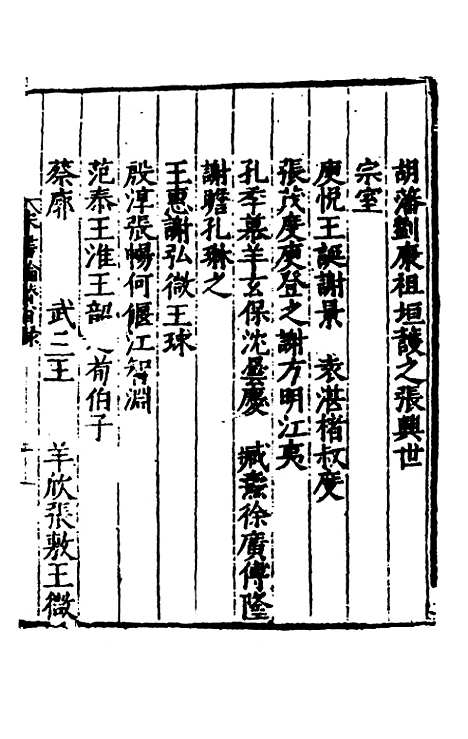 胡藩劉康祖垣護之張興世
宗室
庾悅王誕謝景 袁湛褚叔度
張茂度庾登之謝方明江夷
孔季恭羊玄保沈曇慶 臧燾徐廣傅隆
謝瞻孔琳之
王惠謝弘微王球
殷淳張暢何偃江智淵
范泰王准王韶 荀伯子
蔡廓 武二王 羊欣張敷王微